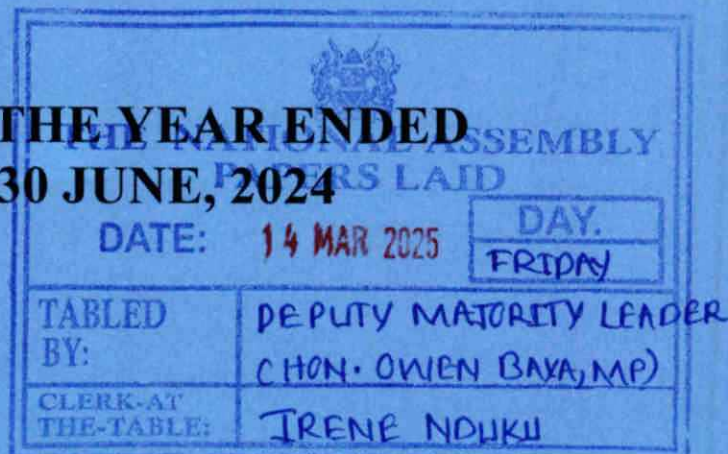 THE YEAR ENDED
THE NATIONAL ASSEMBLY
30 JUNE, 2024
PAPERS LAID
DATE: 14 MAR 2025
DAY.
FRIDAY
TABLED BY:
DEPUTY MAJORITY LEADER
(HON. OWEN BAYA, MP)
CLERK-AT THE-TABLE:
IRENE NDUKU